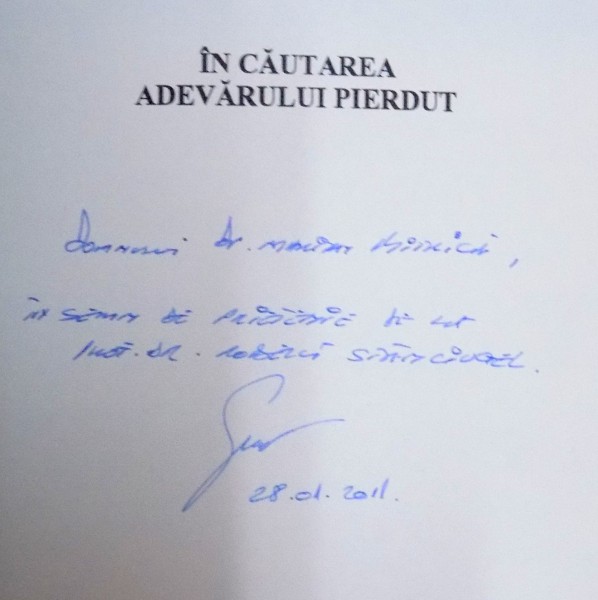 ÎN CĂUTAREA
ADEVĂRULUI PIERDUT
Domnului Dr. Marian
în semn de prietenie de la
Prof. dr.
28.01.2011.